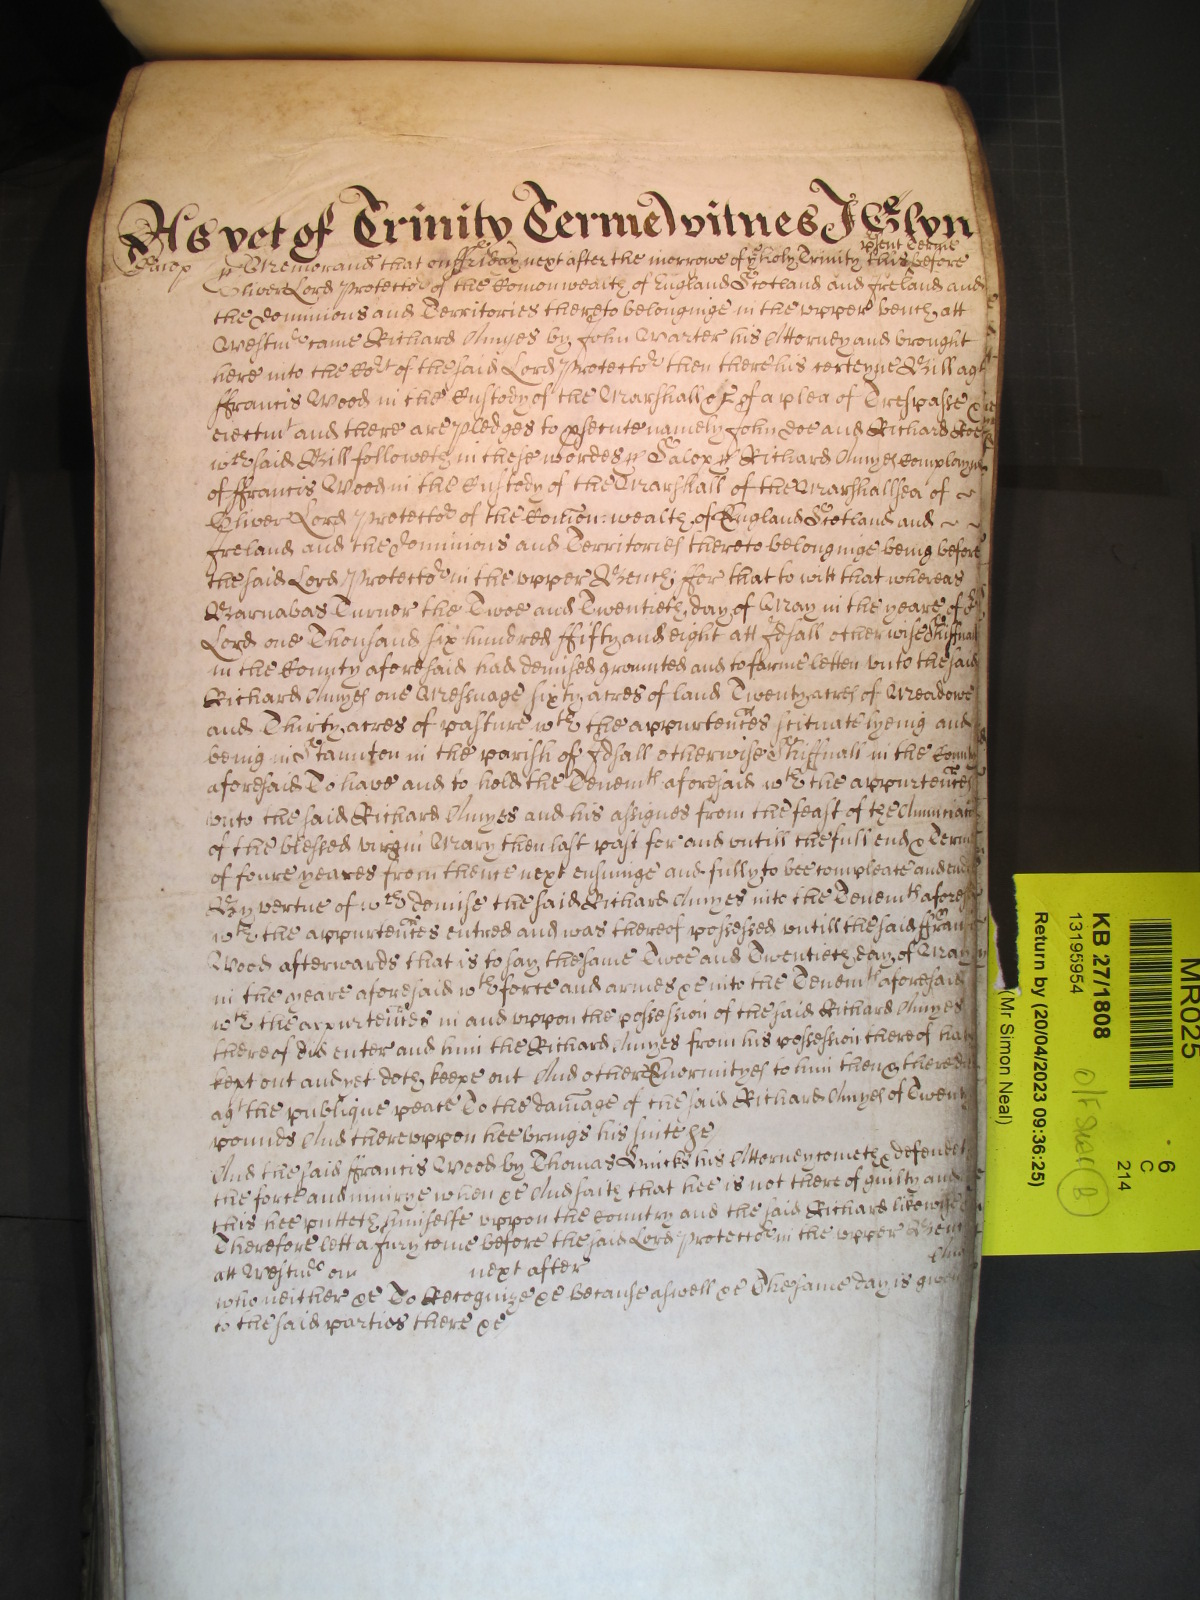 As yet of Trinity Terme witnes J Glyn
Salop ss Memorand that on ffriday next after the morrowe of ye holy Trinity this psent terme before
Oliver Lord Protector of the Comonwealth of England Scotland and Ireland and
the dominions and Territories thereto belonginge in the upper bench att
Westmr came Richard Amyes by John Warter his Attorney and brought
here into the Cort of the said Lord Protector then there his certeyne Bill agt
ffrancis Wood in the Custody of the Marshall &c of a plea of Trespasse &
eiectmt and there are pledges to psecute namely John Doe and Richard Roe
wch said Bill followeth in these wordes ss Salop ss Richard Amyes Complayns
of ffrancis Wood in the Custody of the Marshall of the Marshallsea of
Oliver Lord Protector of the Comon:wealth of England Scotland and
Ireland and the Dominions and Territories thereto belonginge being before
the said Lord Protector in the upper Bench ffor that to witt that whereas
Barnabas Turner the Twoe and Twentieth day of May in the yeare of
Lord one Thousand six hundred ffifty and eight att Idsall otherwise Shiffnall
in the County aforesaid had demised graunted and to farme letten unto the said
Richard Amyes one Messuage sixty acres of land Twenty acres of Meadowe
and Thirty acres of pasture wth the appurtences scituate lyeing and
being in Staunton in the parish of Idsall otherwise Shiffnall in the County
aforesaid To have and to hold the Tenemts aforesaid wth the appurtences
unto the said Richard Amyes and his assignes from the feast of the Annunciacon
of the blessed virgin Mary then last past for and untill the full end & Terme
of foure yeares from thence next ensuinge and fully to bee compleate and ended
By vertue of wch demise the said Richard Amyes into the Tenemts aforesd
wth the appurtences entred and was thereof possessed untill the said ffrancis
Wood afterwards that is to say the same Twoe and Twentieth day of May
in the yeare aforesaid wth force and armes &c into the Tenemts aforesaid
wth the appurtences in and uppon the possession of the said Richard Amyes
thereof did enter and him the Richard Amyes from his possession thereof hath
kept out and yet doth keepe out And other Enormityes to him then & there did
agt the publique peace To the damage of the said Richard Amyes of Twenty
pounds And thereuppon hee brings his suite &c
And the said ffrancis Wood by Thomas his Attorney cometh & defendeth
the force and iniurye when &c And saith that hee is not thereof guilty and
this hee putteth himselfe uppon the Country and the said Richard likewise
Therefore lett a Jury come before the said Lord Protector in the upper Bench
att Westmr on next after
who neither &c To Recognize &c because aswell &c The same day is given
to the said parties there &c
MR025
KB 27/1808
13195954
Return by (20/04/2023 09:36:25)
(Mr Simon Neal)
6
C
214
B